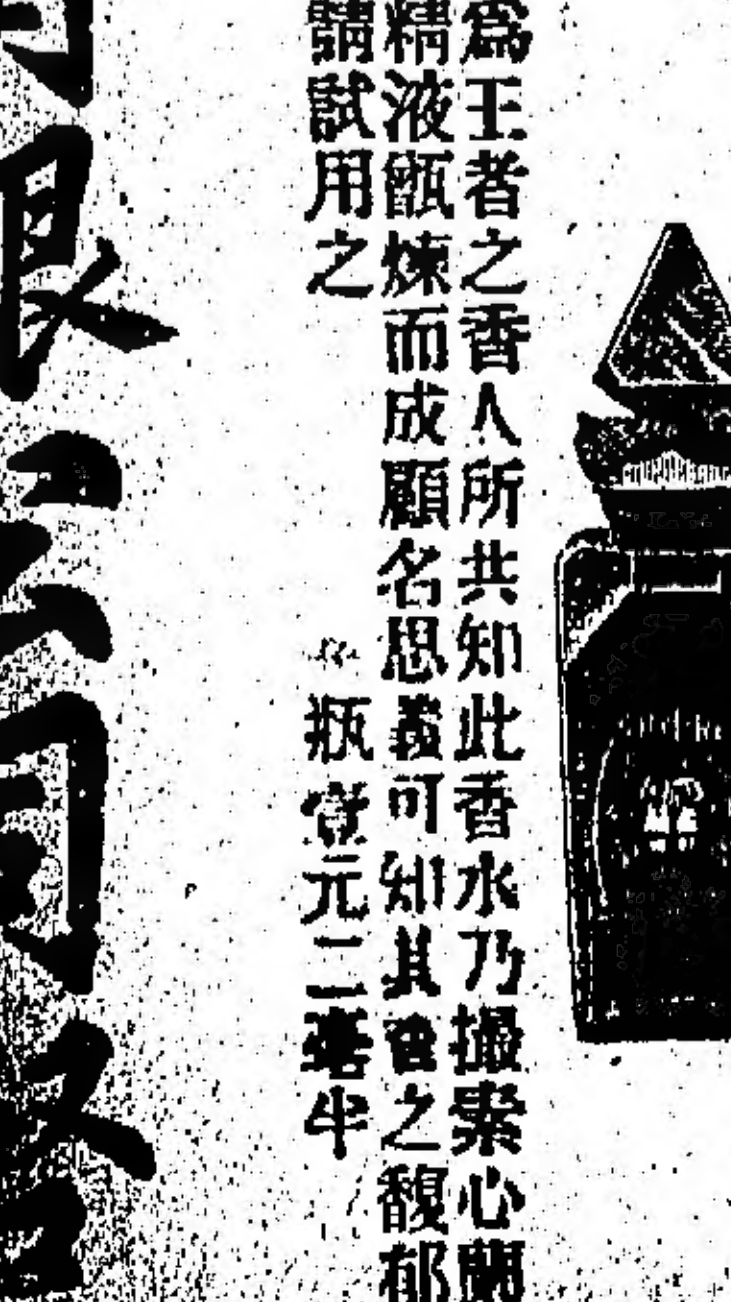 為王者之香人所共知此香水乃撮素心蘭
精液甑煉而成顧名思義可知其香之馥郁
請試用之
瓶壹元二毫半
限公司